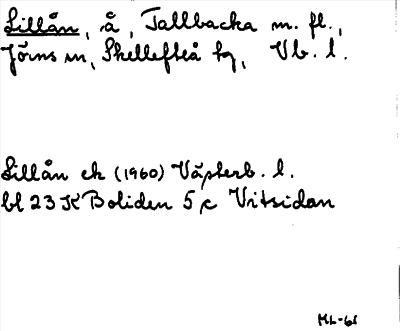 Lillån, å, Tallbacka m. fl.,
Jörns sn, Skellefteå tg, Vb. l.
Lillån ek (1960) Västerb. l.
bl 23 K Boliden 5 c Vitsidan
ML-65